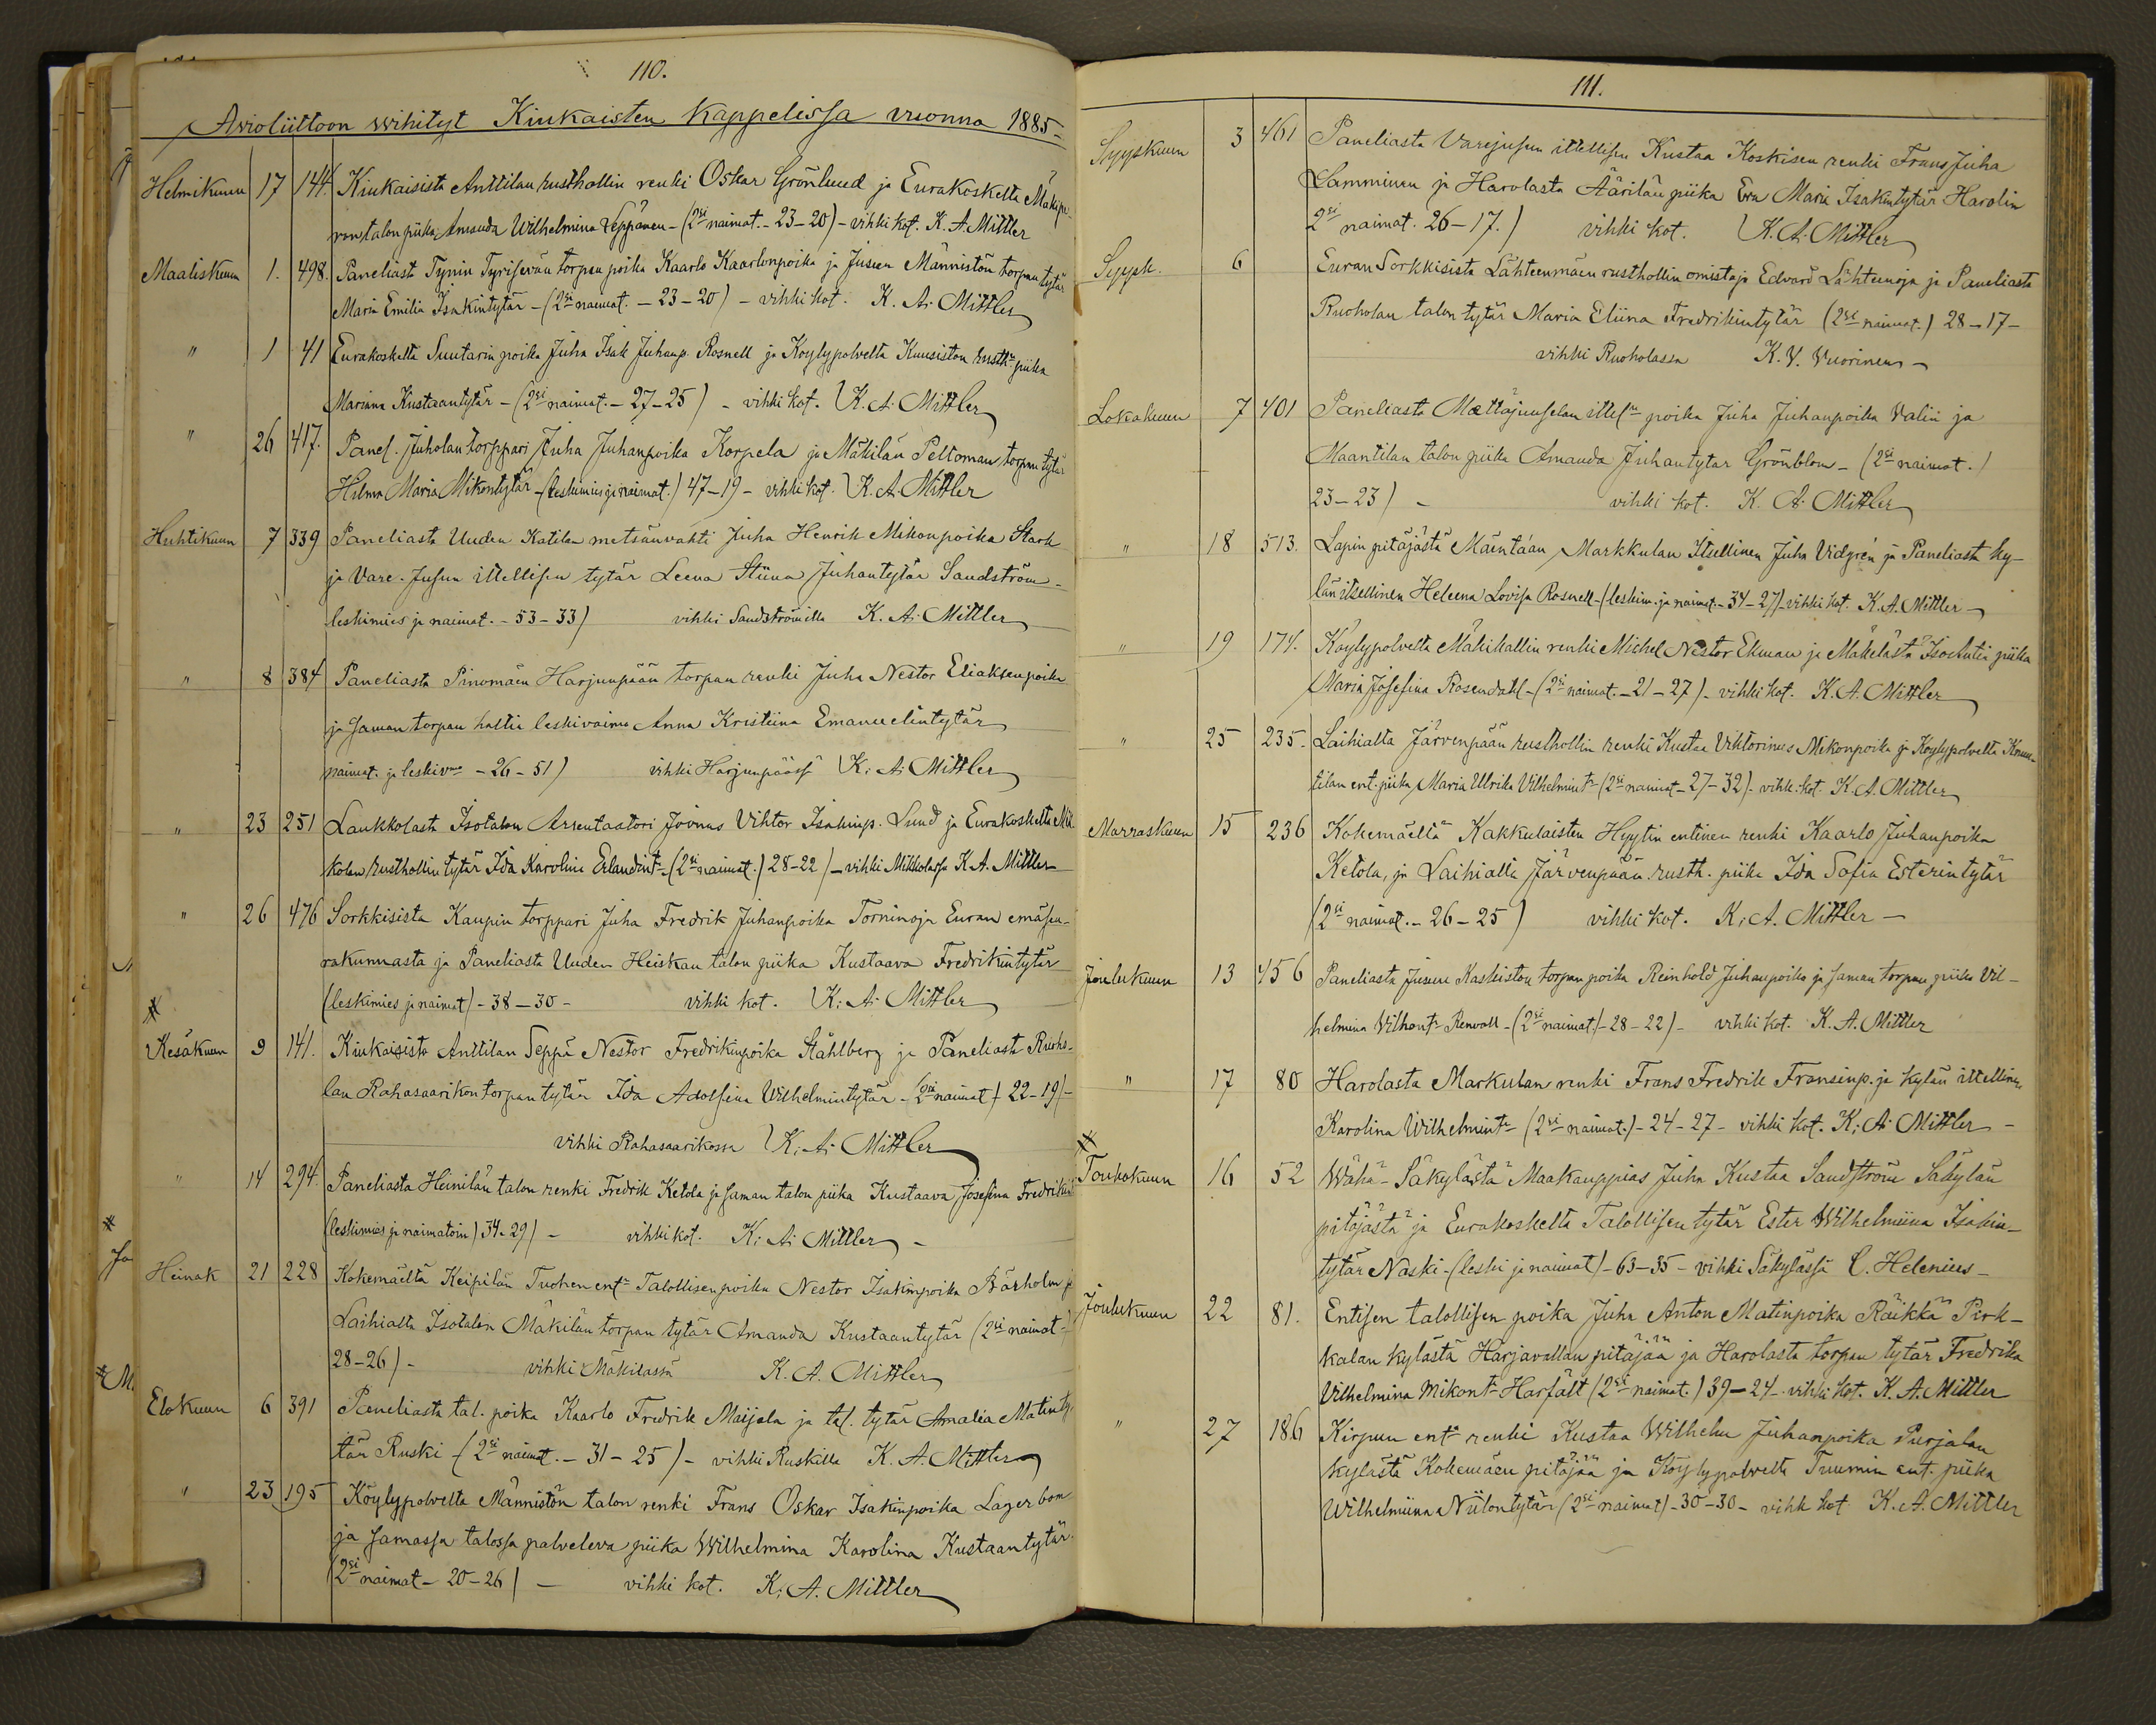 110.
Avioliittoon wihityt Kiukaisten Kappelissa vuonna 1885
Helmikuun 17 144. Kiukaisista Anttilan rusthollin renki Oskar Grönlund ja Eurakoskelta
talon piika Amanda Wilhelmina Seppänen - (2si naimat. - 23-20) - vihki kot. K. A. Mittler
Maaliskuun 1. 498. Paneliasta Tynin Tyrisevän torpan poika Kaarlo Kaarlonpoika ja Jusun Männistön torpan tytär
Maria Emilia Isakintytär - (2si naimat. - 23-20) - vihki kot. K. A. Mittler
" 1 41 Eurakoskelta Suutarin poika Juha Isak Juhanp. Rosnell ja Köylypolvelta Kuusiston rusth. piika
Mariana Kustaantytär - (2si naimat. - 27-25) - vihki kot. K. A. Mittler
" 26 417. Panel. Juholan torppari Juha Juhanpoika Korpela ja Mäkilän Peltoman torpan tytär
Hilma Maria Mikontytär - (leskimies ja naimat.) 47-19 - vihki kot. K. A. Mittler
Huhtikuun 7 339 Paneliasta Uuden Katilan metsänvahti Juha Henrik Mikonpoika Stark
ja Vare-Jusun ittellisen tytär Leena Stiina Juhantytär Sandström -
leskimies ja naimat. - 53-33) vihki Sandströmillä K. A. Mittler
" 8 384 Paneliasta Pinomäen Harjunpään torpan renki Juha Nestor Eliaksenpoika
ja saman torpan haltia leskivaimo Anna Kristiina Emanuelintytär
naimat. ja leskivmo - 26-51) vihki Harjunpäässä K. A. Mittler
" 23 251 Laukkolasta Isotalon Arrentaatori Joonas Vihtor Isakinp. Lund ja Eurakoskelta Mik
kolan rusthollin tytär Ida Karolina Erlandint. (2si naimat.) 28-22) - vihki Mikkolassa K. A. Mittler
" 26 476 Sorkkisista Kaupin torppari Juha Fredrik Juhanpoika Torninoja Euran emäseu-
rakunnasta ja Paneliasta Uuden Heiskan talon piika Kustaava Fredrikintytär
(leskimies ja naimat) - 38-30 - vihki kot. K. A. Mittler
Kesäkuun 9 141. Kiukaisista Anttilan Seppä Nestor Fredrikinpoika Ståhlberg ja Paneliasta Ruoho-
lan Rahasaarikon torpan tytär Ida Adolfina Wilhelmintytär - (2si naimat) 22-19) -
vihki Rahasaarikossa K. A. Mittler
" 14 294. Paneliasta Heinilän talon renki Fredrik Ketola ja saman talon piika Kustaava Josefina
(leskimies ja naimatoin) 34-29) - vihki kot. K. A. Mittler -
Heinäk 21 228 Kokemäeltä Keipilän Tuohen ent. Talollisen poika Nestor Isakinpoika ja
Laihialta Isotalon Mäkilän torpan tytär Amanda Kustaantytär (2si naimat -
28-26) - vihki Mäkilässä K. A. Mittler
Elokuun 6 391 Paneliasta tal. poika Kaarlo Fredrik Maijala ja tal. tytär Amalia Matinty-
tär Ruski - (2si naimat. - 31-25) - vihki Ruskilla K. A. Mittler
" 23 195 Köylypolvelta Männistön talon renki Frans Oskar Isakinpoika Lagerbom
ja samassa talossa palveleva piika Wilhelmina Karolina Kustaantytär
(2si naimat - 20-26) - vihki kot. K. A. Mittler
111.
Syyskuun 3 461 Paneliasta Varejusun ittellisen Kustaa Koskisen renki Frans Juha
Lamminen ja Harolasta Äärilän piika Eva Maria Isakintytär Harolin
2si naimat. 26-17.) vihki kot. K. A. Mittler
Syysk. 6 Euran Sorkkisista Lähteenmäen rusthollin omistaja Edvard Lähteenoja ja Paneliasta
Ruoholan talon tytär Maria Eliina Fredrikintytär (2si naimat.) 28-17-
vihki Ruoholassa K. V. Vuorinen -
Lokakuun 7 401 Paneliasta Mattajuuselan poika Juha Juhanpoika Valin ja
Maantilan talon piika Amanda Juhantytär Grönblom - (2si naimat.)
23-23) - vihki kot. K. A. Mittler
" 18 513. Lapin pitäjästä Mäentaan Markkulan Itsellinen Juha Vidgrén ja Paneliasta ky-
län itsellinen Heleena Lovisa Rosnell - (leskim. ja naimat. - 34-27) - vihki kot. K. A. Mittler -
" 19 174. Köylypolvelta Mäkikallin renki Michel Nestor Ekman ja Mäkelästä piika
Maria Josefina Rosendahl - (2si naimat. - 21-27) - vihki kot. K. A. Mittler
" 25 235. Laihialta Järvenpään rusthollin renki Kustaa Viktorinus Mikonpoika ja Köylypolvelta
tilan ent. piika Maria Ulrika Vilhelmint. (2si naimat - 27-32) - vihk. kot. K. A. Mittler
Marraskuun 15 236 Kokemäeltä Kakkulaisten Hyytin entinen renki Kaarlo Juhanpoika
Ketola, ja Laihialta Järvenpään rusth. piika Ida Sofia Esterintytär
(2si naimat. - 26-25) vihki kot. K. A. Mittler -
Joulukuun 13 456 Paneliasta Jusun Kaskiston torpan poika Reinhold Juhanpoika ja saman torpan piika Vil-
helmina Vilhont. Renvall - (2si naimat) - 28-22) - vihki kot. K. A. Mittler
" 17 80 Harolasta Markulan renki Frans Fredrik Fransinp. ja kylän ittellinen
Karolina Wilhelmint. (2si naimat.) - 24-27 - vihki kot. K. A. Mittler -
Toukokuun 16 52 Wähä-Säkylästä Maakauppias Juha Kustaa Sandström Säkylän
pitäjästä ja Eurakoskelta Talollisen tytär Ester Wilhelmiina Isakin-
tytär Naski - (leski ja naimat) - 63-35 - vihki Säkylässä C. Helenius -
Joulukuun 22 81. Entisen talollisen poika Juha Anton Matinpoika Räikkä Pirk-
kalan kylästä Harjavallan pitäjää ja Harolasta torpan tytär Fredrika
Vilhelmina Mikont. Harfält (2si naimat.) 39-24 - vihki kot. K. A. Mittler
" 27 186 Kirpun ent. renki Kustaa Wilhelm Juhanpoika Purjalan
kylästä Kokemäen pitäjää ja Köylypolvelta Tuumin ent. piika
Wilhelmiina Niilontytär (2si naimat) - 30-30 - vihk kot K. A. Mittler